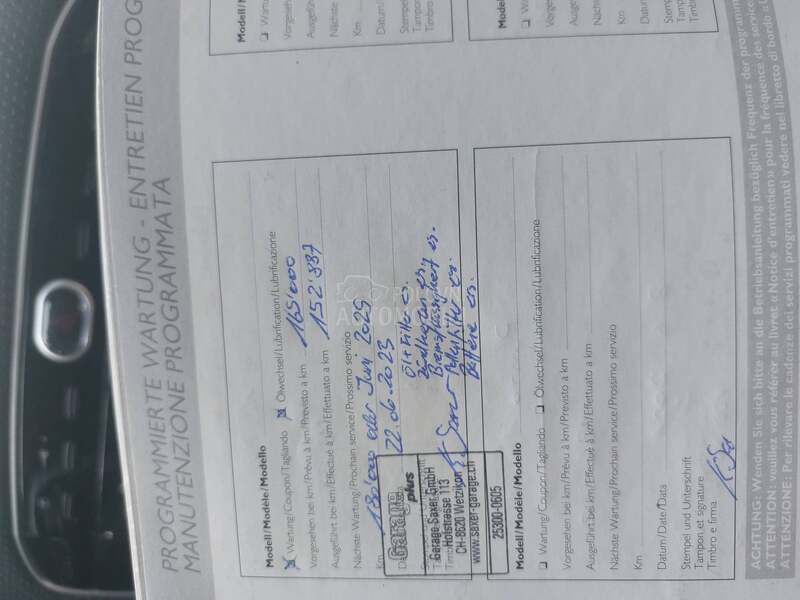 PROGRAMMIERTE WARTUNG - ENTRETIEN PROG
MANUTENZIONE PROGRAMMATA
Modell/Modèle/Modello
Wartung/Coupon/Tagliando Ölwechsel/Lubrification/Lubrificazione
Vorgesehen bei km/Prévu à km/Previsto a km 165'000
Ausgeführt bei km/Effectué à km/Effettuato a km 152'887
Nächste Wartung/Prochain service/Prossimo servizio
Km 180'000 oder Juni 2025
22.06.2023
Öl + Filter er.
er.
Bremsflüssigkeit er.
Pollenfilter er.
Batterie er.
Garage plus
Garage Saxer GmbH
Hofstrasse 113
CH-8620 Wetzikon
www.saxer-garage.ch
25300-0605
Modell/Modèle/Modello
Wartung/Coupon/Tagliando Ölwechsel/Lubrification/Lubrificazione
Vorgesehen bei km/Prévu à km/Previsto a km
Ausgeführt bei km/Effectué à km/Effettuato a km
Nächste Wartung/Prochain service/Prossimo servizio
Km
Datum/Date/Data
Stempel und Unterschrift
Tampon et signature
Timbro e firma
Modell/M
Vorgesehen
Ausgeführt
Nächste
Km
Datum/
Stempel
Tampon
Timbro
Modell
Wa
Vorges
Ausgef
Nächst
Km
Datum
Stempe
Tampon
Timbro
ACHTUNG: Wenden Sie sich bitte an die Betriebsanleitung bezüglich Frequenz der programm
ATTENTION: veuillez vous référer au livret « Notice d'entretien » pour la fréquence des service
ATTENZIONE: Per rilevare le cadenze dei servizi programmati vedere nel libretto di bordo a